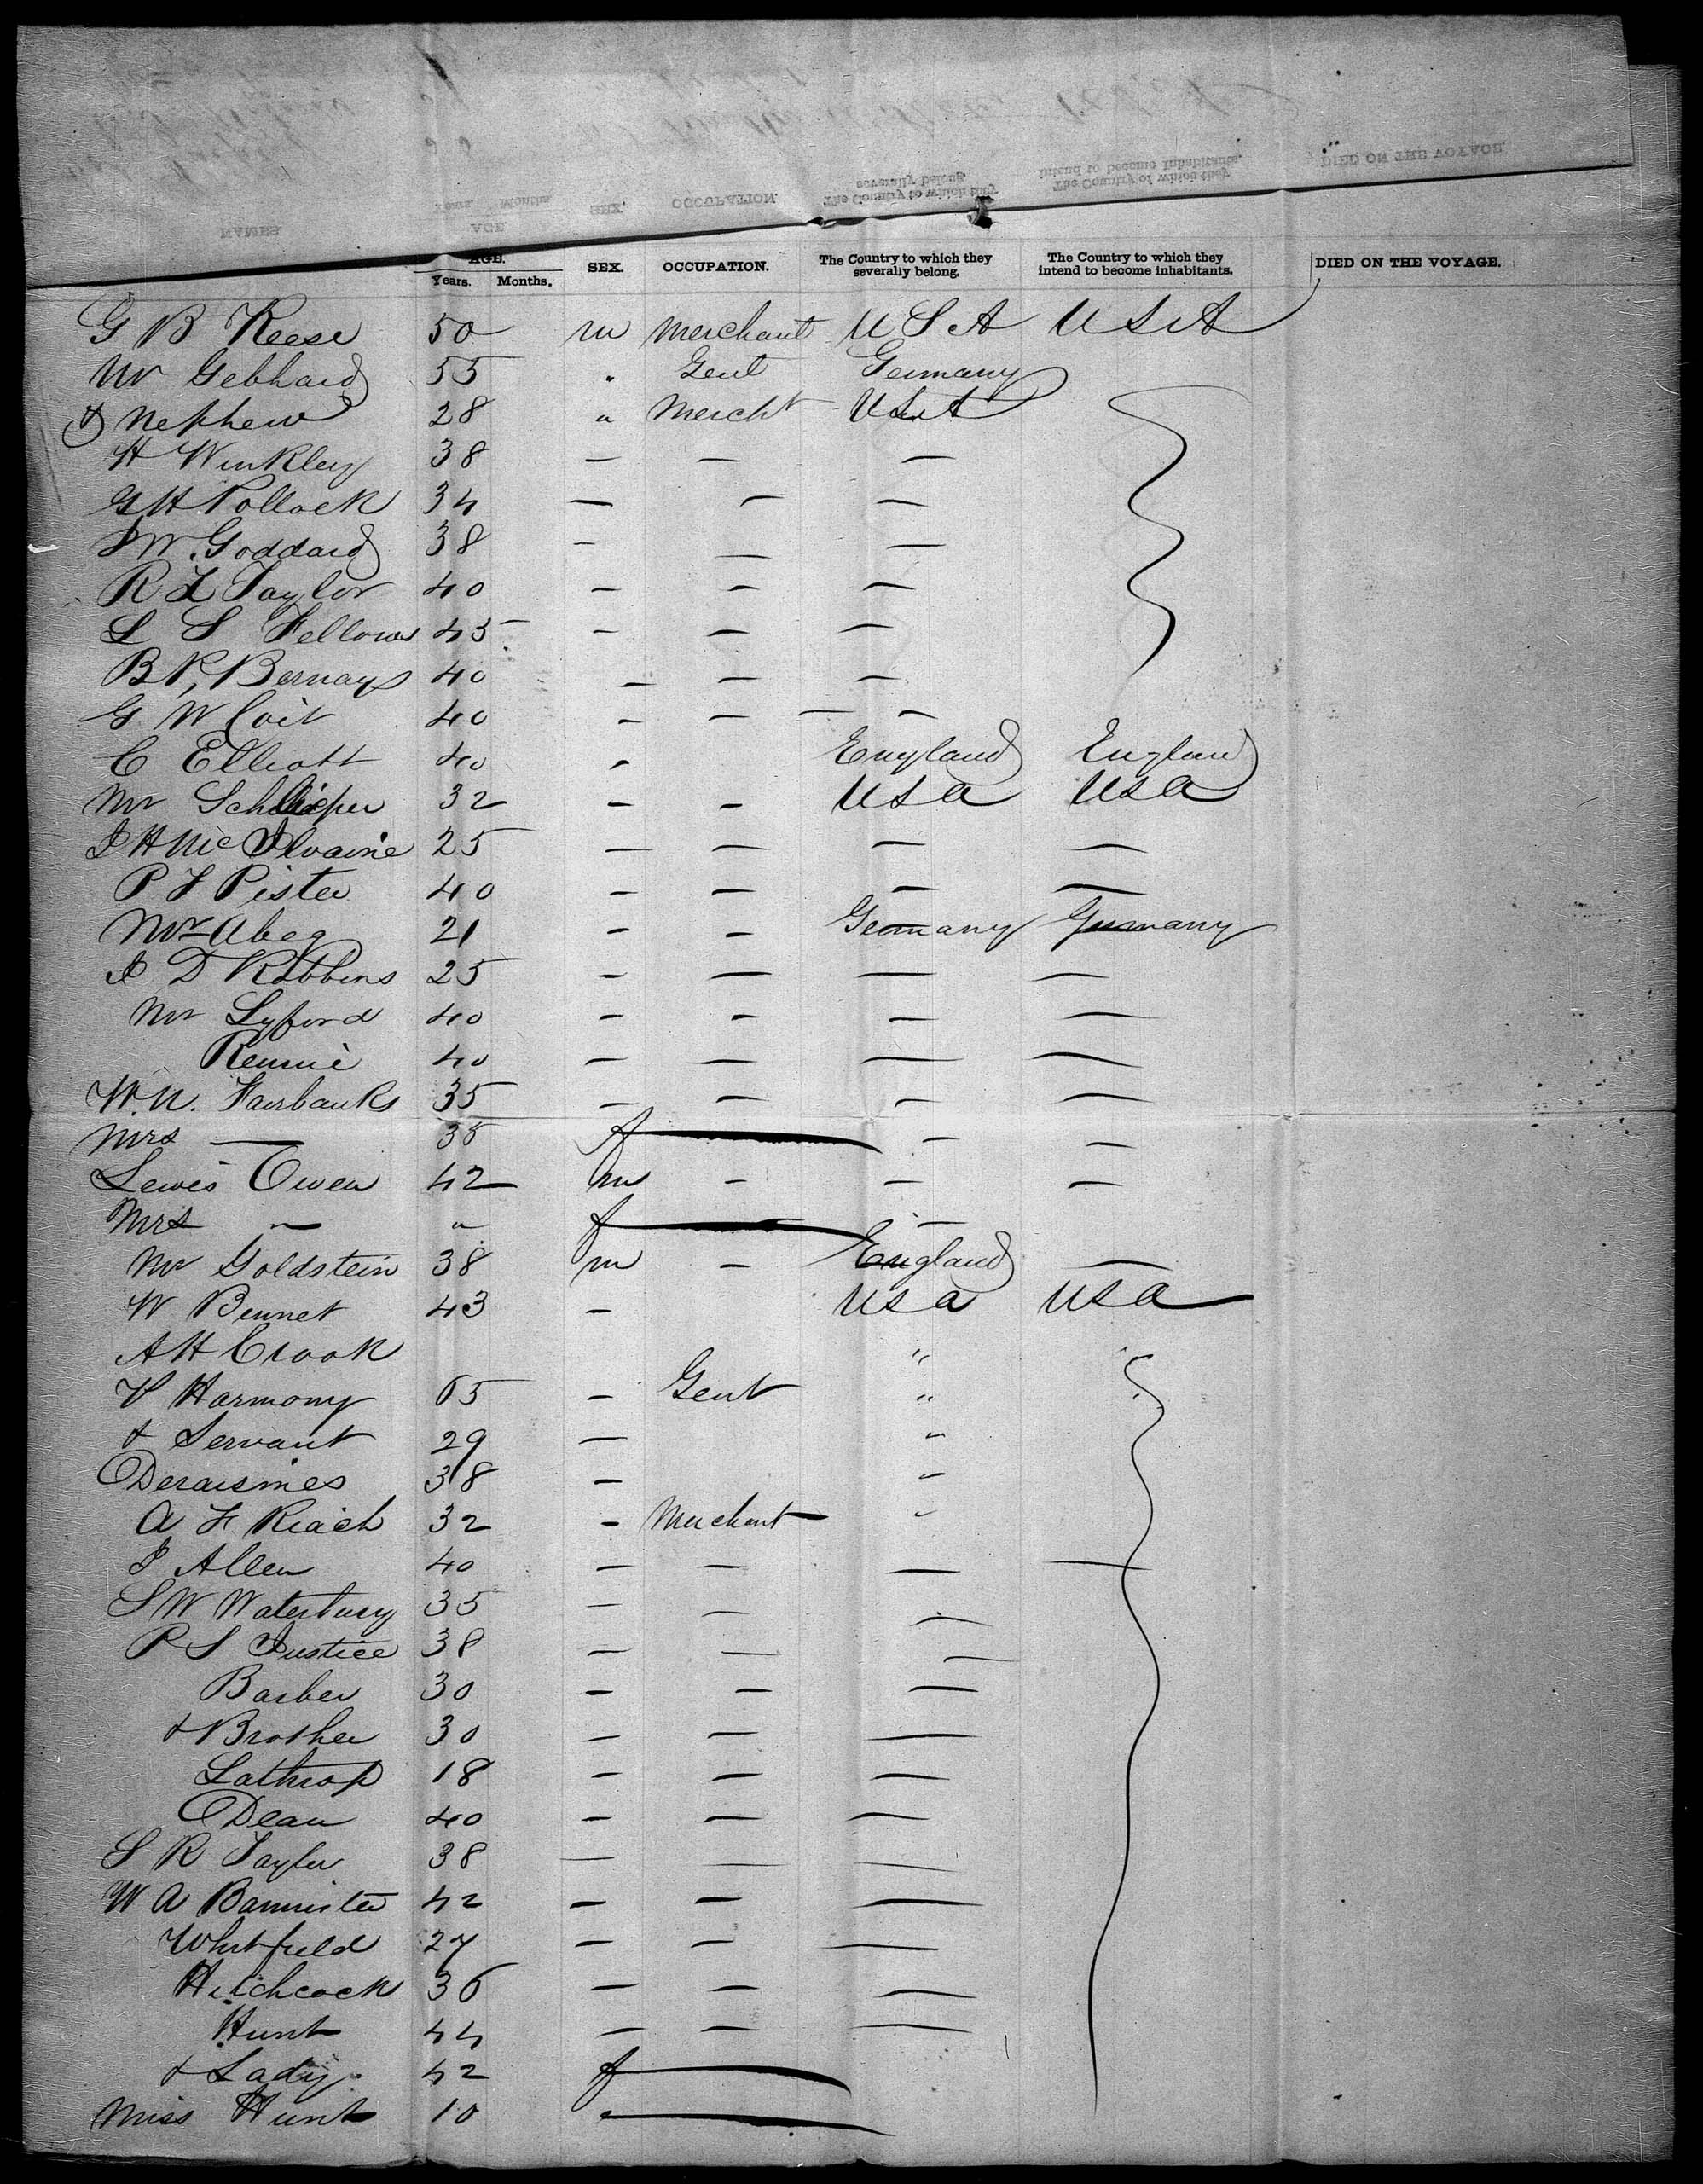 AGE.
Years. Months. SEX. OCCUPATION. The Country to which they severally belong. The Country to which they intend to become inhabitants. DIED ON THE VOYAGE.
G B Reese 50 m Merchant U S A U S A
Mr Gebhard 55 " Gent Germany
& Nephew 28 " Mercht U S A
H Winkley 38 — — —
G H Pollock 34 — — —
J W. Goddard 38 — — —
R L Taylor 40 — — —
L S Fellows 45 — — —
B P, Bernays 40 — — —
G W Coit 40 — — —
C Elliott 40 - England England
Mr Schlieper 32 — — USA USA
J H McIlvaine 25 — — — —
P F Pister 40 — — — —
Mr Abeg 21 — — Germany Germany
J D Robbins 25 — — — —
Mr Lyford 40 — — — —
Rennie 40 — — — —
W. N. Fairbanks 35 — — — —
Mrs — 35 f — —
Lewis Owen 42 m — — —
Mrs — " f —
Mr Goldstein 38 m — England —
W Bennet 43 — USA USA
A H Crook "
P Harmony 65 — Gent " "
& Servant 29 — "
Deraismes 38 — "
A F Riach 32 — Merchant "
J Allen 40 — — — —
S W Waterbury 35 — — —
P S Justice 38 — — —
Barber 30 — — —
& Brother 30 — — —
Lathrop 18 — — —
Dean 40 — — —
S R Taylor 38 — — —
W A Bannister 42 — — —
Whitfield 27 — — —
Hitchcock 36 — — —
Hunt 44 — — —
& Lady. 42 f
Miss Hunt 10 "
NAMES
AGE
Years. Months. SEX. OCCUPATION. The Country to which they severally belong. The Country of which they intend to become inhabitants. DIED ON THE VOYAGE.